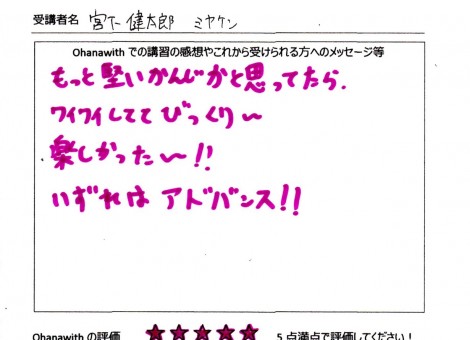 受講者名 宮下 健太郎 ミヤケン
Ohanawith での講習の感想やこれから受けられる方へのメッセージ等
もっと堅いかんじかと思ってたら、
ワイワイしててびっくり〜
楽しかった〜!!
いずれは アドバンス!!
Ohanawith の評価 ★★★★★ 5 点満点で評価してください!